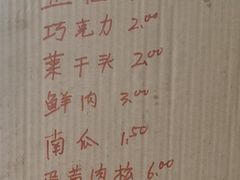 巧克力 2.00
菜干头 2.00
鲜肉 3.00
南瓜 1.50
蛋黄肉粽 6.00